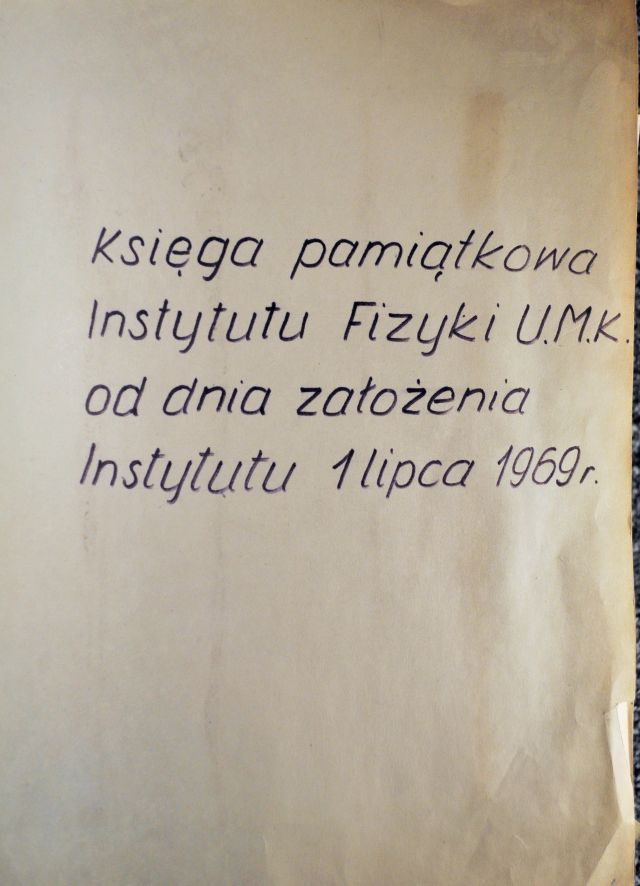 Księga pamiątkowa
Instytutu Fizyki U.M.K.
od dnia założenia
Instytutu 1 lipca 1969 r.